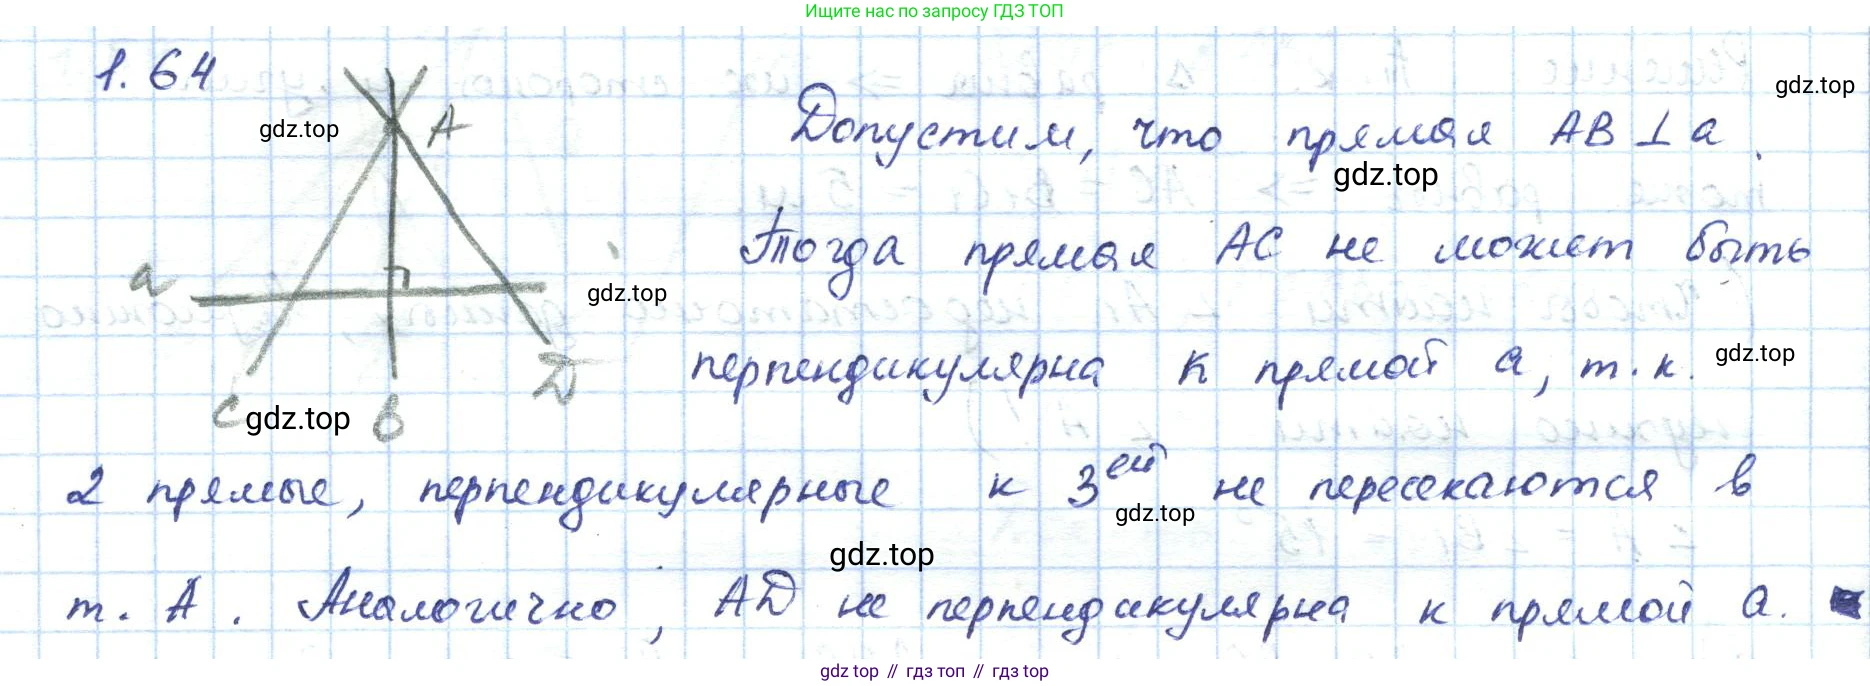 Ищите нас по запросу ГДЗ ТОП
1.64
gdz.top
gdz.top
A
Допустим, что прямая AB ⊥ a.
gdz.top
Тогда прямая AC не может быть
a
gdz.top
перпендикулярна к прямой a, т.к.
gdz.top
C
gdz.top
B
D
2 прямые, перпендикулярные к 3ей не пересекаются в
gdz.top
gdz.top
т. A. Аналогично, AD не перпендикулярна к прямой a.
gdz top // гдз топ // гдз top